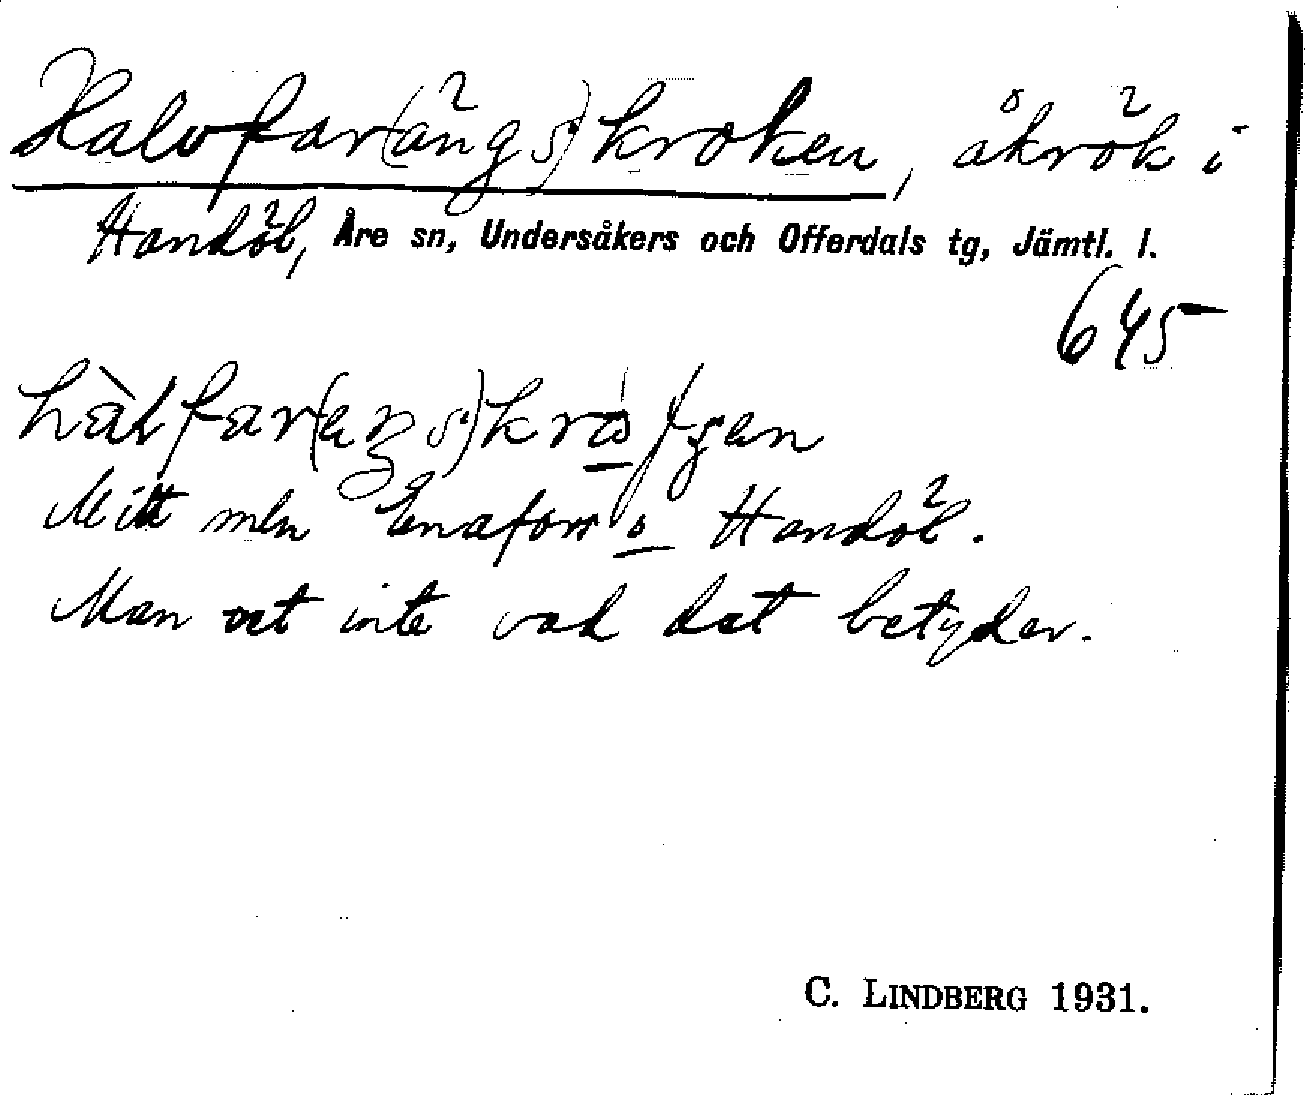 Halvfar(ängs)kroken, åkrök i
Handöl, Åre sn, Undersåkers och Offerdals tg, Jämtl. l.
645
Mitt mln Enafors o Handöl.
Man vet inte vad det betyder.
C. LINDBERG 1931.